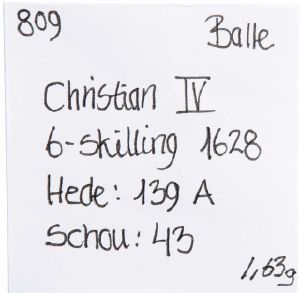 809 Balle
Christian IV
6-skilling 1628
Hede: 139 A
Schou: 43
1,63g